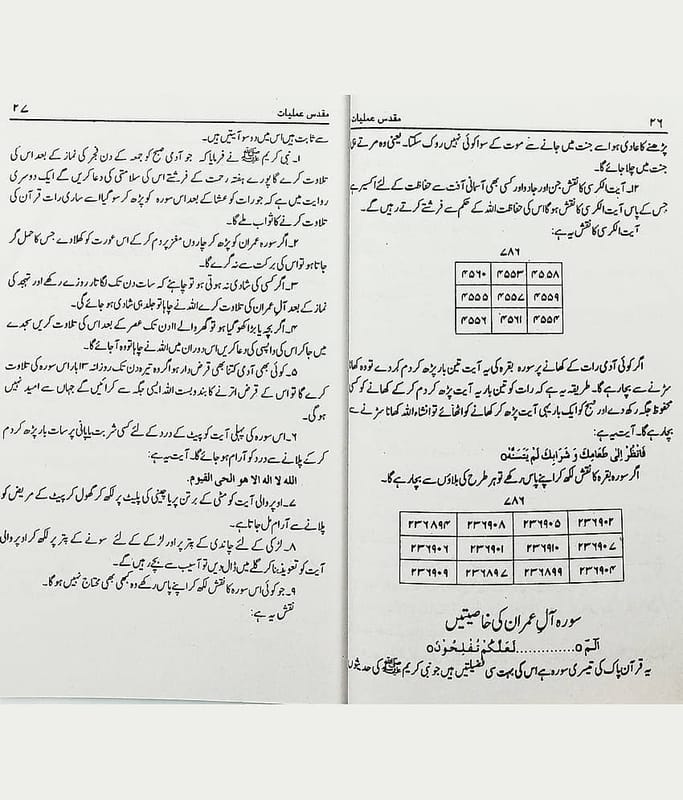 ۲۶
مقدس عملیات
پڑھنے کا عادی ہو اسے جنت میں جانے سے موت کے سوا کوئی نہیں روک سکتا۔ یعنی وہ مرتے ہی
جنت میں چلا جائے گا۔
۱۲۔ آیت الکرسی کا نقش جن اور جادو اور کسی بھی آسمانی آفت سے حفاظت کے لئے اکسیر ہے
جس کے پاس آیت الکرسی کا نقش ہوگا اس کی حفاظت اللہ کے حکم سے فرشتے کرتے رہیں گے۔
آیت الکرسی کا نقش یہ ہے:
۷۸۶
۴۵۶۰ ۴۵۵۳ ۴۵۵۸
۴۵۵۵ ۴۵۵۷ ۴۵۵۹
۴۵۵۶ ۴۵۶۱ ۴۵۵۴
اگر کوئی آدمی رات کے کھانے پر سورہ بقرہ کی یہ آیت تین بار پڑھ کر دم کر دے تو وہ کھانا
سڑنے سے بچا رہے گا۔ طریقہ یہ ہے کہ رات کو تین بار یہ آیت پڑھ کر دم کر کے کھانے کو کسی
محفوظ جگہ رکھ دے اور صبح کو ایک بار یہی آیت پڑھ کر کھانے کو اٹھائے تو انشاء اللہ کھانا سڑنے سے
بچا رہے گا۔ آیت یہ ہے:
فَانْظُرْ اِلٰی طَعَامِكَ وَ شَرَابِكَ لَمْ يَتَسَنَّهْ۝
اگر سورہ بقرہ کا نقش لکھ کر اپنے پاس رکھے تو ہر طرح کی بلاؤں سے بچا رہے گا۔
۷۸۶
۲۳۶۸۹۴ ۲۳۶۹۰۸ ۲۳۶۹۰۵ ۲۳۶۹۰۲
۲۳۶۹۰۶ ۲۳۶۹۰۱ ۲۳۶۹۱۰ ۲۳۶۹۰۷
۲۳۶۹۰۹ ۲۳۶۸۹۷ ۲۳۶۸۹۹ ۲۳۶۹۰۴
سورہ آل عمران کی خاصیتیں
الٓمّٓ ۝.............لَعَلَّكُمْ تُفْلِحُوْنَ۝
یہ قرآن پاک کی تیسری سورہ ہے اس کی بہت سی فضیلتیں ہیں جو نبی کریم ﷺ کی حدیثوں
۲۷
مقدس عملیات
سے ثابت ہیں اس میں دو سو آیتیں ہیں۔
۱۔ نبی کریم ﷺ نے فرمایا کہ جو آدمی صبح کو جمعہ کے دن فجر کی نماز کے بعد اس کی
تلاوت کرے گا پورے ہفتہ رحمت کے فرشتے اس کی سلامتی کی دعا کریں گے ایک دوسری
روایت میں ہے کہ جو رات کو عشا کے بعد اس سورہ کو پڑھ کر سو گیا اسے ساری رات قرآن کی
تلاوت کرنے کا ثواب ملے گا۔
۲۔ اگر سورہ عمران کو پڑھ کر چاروں مغز پر دم کر کے اس عورت کو کھلا دے جس کا حمل گر
جاتا ہو تو اس کی برکت سے نہ گرے گا۔
۳۔ اگر کسی کی شادی نہ ہوتی ہو تو چاہئے کہ سات دن تک لگاتار روزے رکھے اور تہجد کی
نماز کے بعد آل عمران کی تلاوت کرے اللہ نے چاہا تو جلد ہی شادی ہو جائے گی۔
۴۔ اگر بچہ یا بڑا کھو گیا ہو تو گھر والے ۱۱ دن تک عصر کے بعد اس کی تلاوت کریں سجدے
میں جا کر اس کی واپسی کی دعا کریں اس دوران میں اللہ نے چاہا تو وہ آ جائے گا۔
۵۔ کوئی بھی آدمی کتنا بھی قرض دار ہو اگر وہ تیرہ دن تک روزانہ ۱۳ بار اس سورہ کی تلاوت
کرے گا تو اس کے قرض اترنے کا بندوبست اللہ ایسی جگہ سے کرائیں گے جہاں سے امید نہیں
ہوگی۔
۶۔ اس سورہ کی پہلی آیت کو پیٹ کے درد کے لئے کسی شربت یا پانی پر سات بار پڑھ کر دم
کر کے پلانے سے درد کو آرام ہو جائے گا۔ آیت یہ ہے:
الله لا اله الا هو الحی القیوم.
۷۔ اوپر والی آیت کو مٹی کے برتن پر یا چینی کی پلیٹ پر لکھ کر گھول کر پیٹ کے مریض کو
پلانے سے آرام مل جاتا ہے۔
۸۔ لڑکی کے لئے چاندی کے پتر پر اور لڑکے کے لئے سونے کے پتر پر لکھ کر اوپر والی
آیت کو تعویذ بنا کر گلے میں ڈال دیں تو آسیب سے بچے رہیں گے۔
۹۔ جو کوئی اس سورہ کا نقش لکھ کر اپنے پاس رکھے وہ کبھی بھی محتاج نہیں ہوگا۔
نقش یہ ہے: